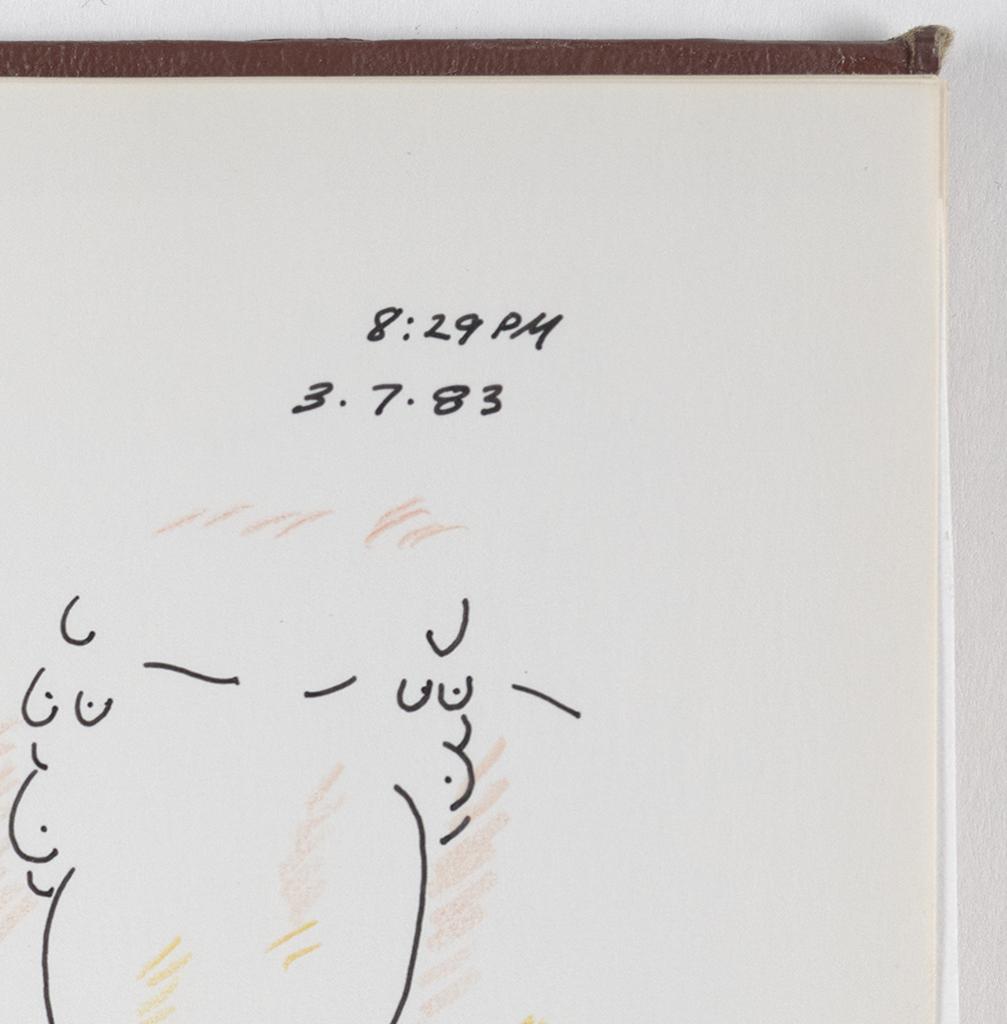 8:29 PM
3.7.83